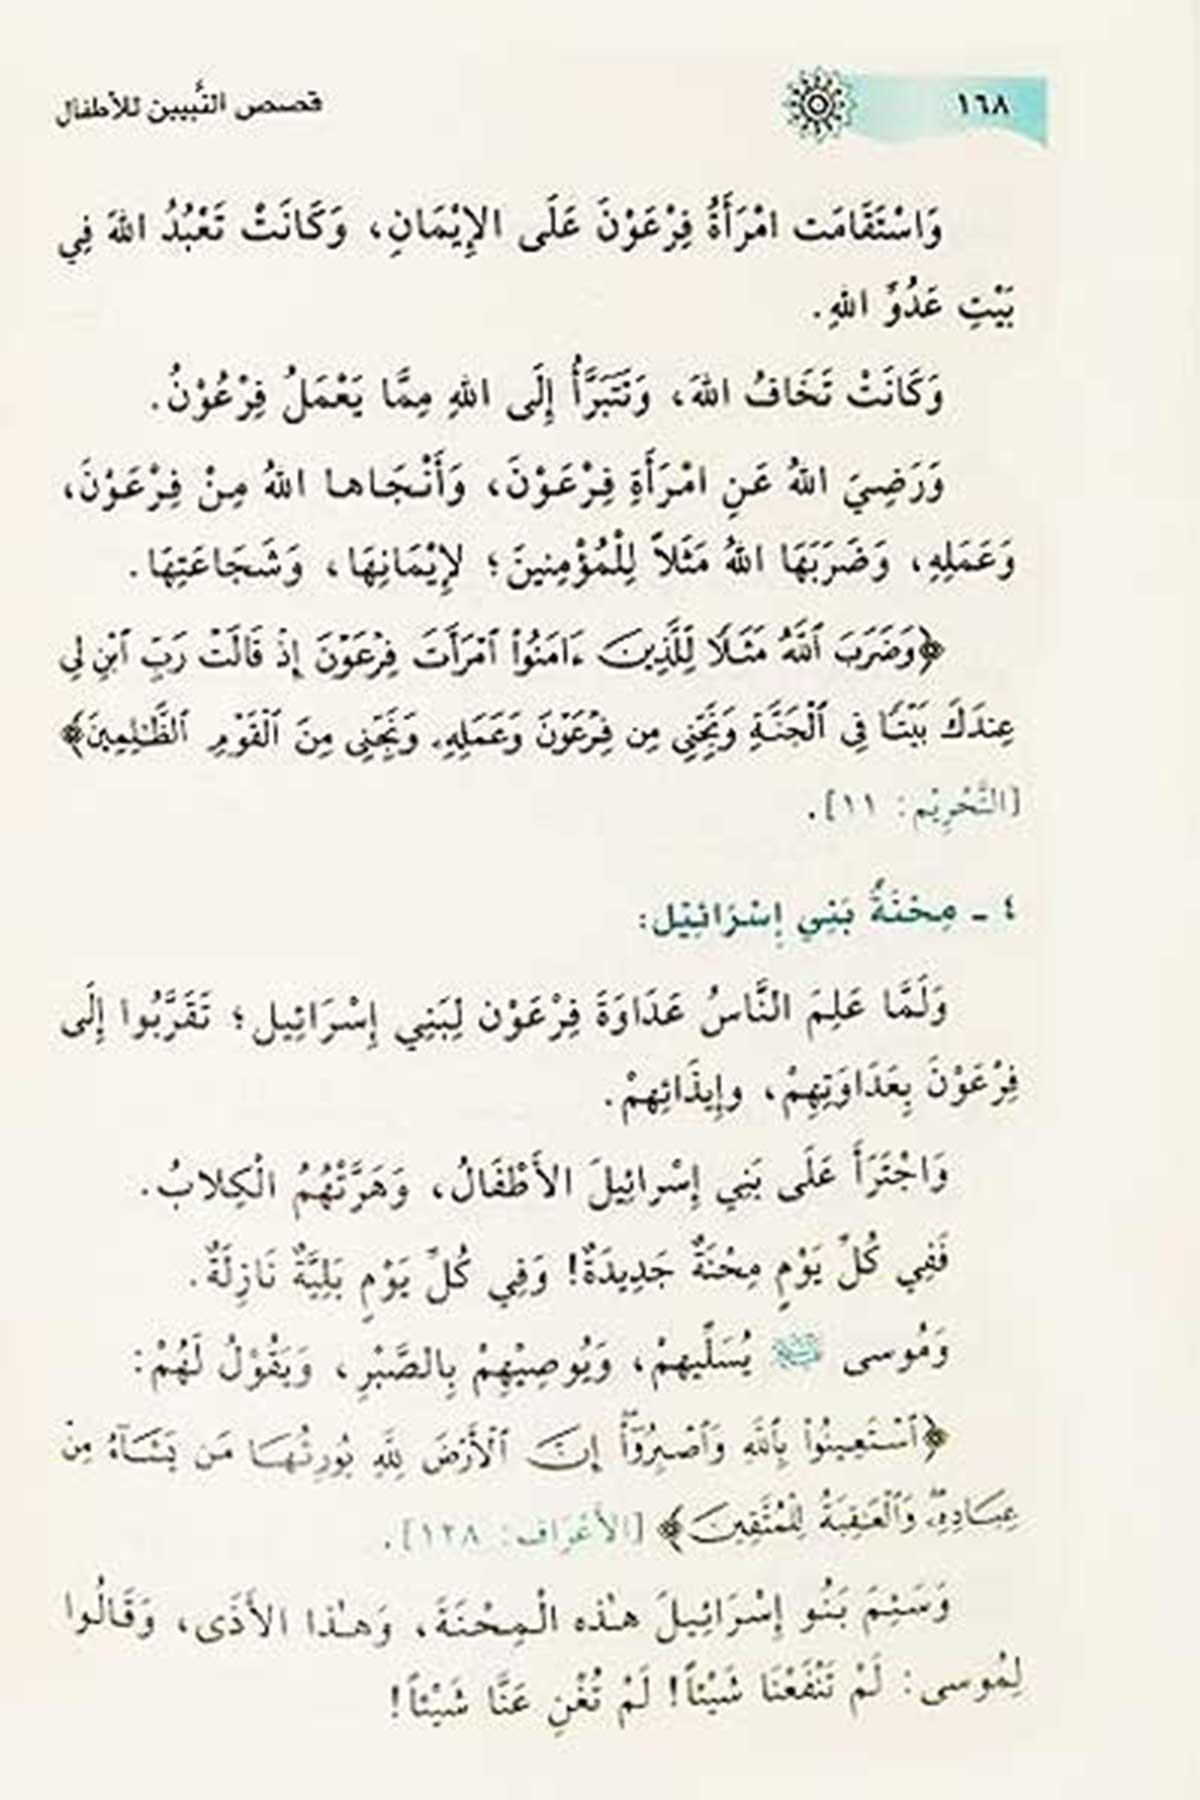 ١٦٨
قصص النَّبيين للأطفال
وَاسْتَقَامَت امْرَأَةُ فِرْعَوْنَ عَلَى الإِيْمَانِ، وَكَانَتْ تَعْبُدُ اللهَ فِي
بَيْتِ عَدُوِّ اللهِ.
وَكَانَتْ تَخَافُ اللهَ، وَتَتَبَرَّأُ إِلَى اللهِ مِمَّا يَعْمَلُ فِرْعُوْنُ.
وَرَضِيَ اللهُ عَنِ امْرَأَةِ فِرْعَوْنَ، وَأَنْجَاها اللهُ مِنْ فِرْعَوْنَ،
وَعَمَلِهِ، وَضَرَبَهَا اللهُ مَثَلاً لِلْمُؤْمِنِينَ؛ لإِيْمَانِهَا، وَشَجَاعَتِهَا.
﴿وَضَرَبَ ٱللَّهُ مَثَلًا لِّلَّذِينَ ءَامَنُوا۟ ٱمْرَأَتَ فِرْعَوْنَ إِذْ قَالَتْ رَبِّ ٱبْنِ لِى
عِندَكَ بَيْتًا فِى ٱلْجَنَّةِ وَنَجِّنِى مِن فِرْعَوْنَ وَعَمَلِهِۦ وَنَجِّنِى مِنَ ٱلْقَوْمِ ٱلظَّٰلِمِينَ﴾
[التَّحْرِيْم: ١١].
٤ ـ مِحْنَةُ بَنِي إِسْرَائِيْل:
وَلَمَّا عَلِمَ النَّاسُ عَدَاوَةَ فِرْعَوْن لِبَنِي إِسْرَائِيل؛ تَقَرَّبُوا إِلَى
فِرْعَوْنَ بِعَدَاوَتِهِمْ، وإِيذَائِهِمْ.
وَاجْتَرَأَ عَلَى بَنِي إِسْرائِيلَ الأَطْفَالُ، وَهَرَّتْهُمُ الْكِلابُ.
فَفِي كُلِّ يَوْمٍ مِحْنَةٌ جَدِيدَةٌ! وَفِي كُلِّ يَوْمٍ بَلِيَّةٌ نَازِلَةٌ.
وَمُوسى يُسَلِّيهِمْ، وَيُوصِيْهِمْ بِالصَّبْرِ، وَيَقُوْلُ لَهُمْ:
﴿ٱسْتَعِينُوا۟ بِٱللَّهِ وَٱصْبِرُوٓا۟ إِنَّ ٱلْأَرْضَ لِلَّهِ يُورِثُهَا مَن يَشَآءُ مِنْ
عِبَادِهِۦ وَٱلْعَٰقِبَةُ لِلْمُتَّقِينَ﴾ [الأعْرَاف: ١٢٨].
وَسَئِمَ بَنُو إِسْرَائِيلَ هٰذه الْمِحْنَةَ، وَهٰذا الأَذَى، وَقَالُوا
لِمُوسى: لَمْ تَنْفَعْنَا شَيْئاً! لَمْ تُغْنِ عَنَّا شَيْئاً!